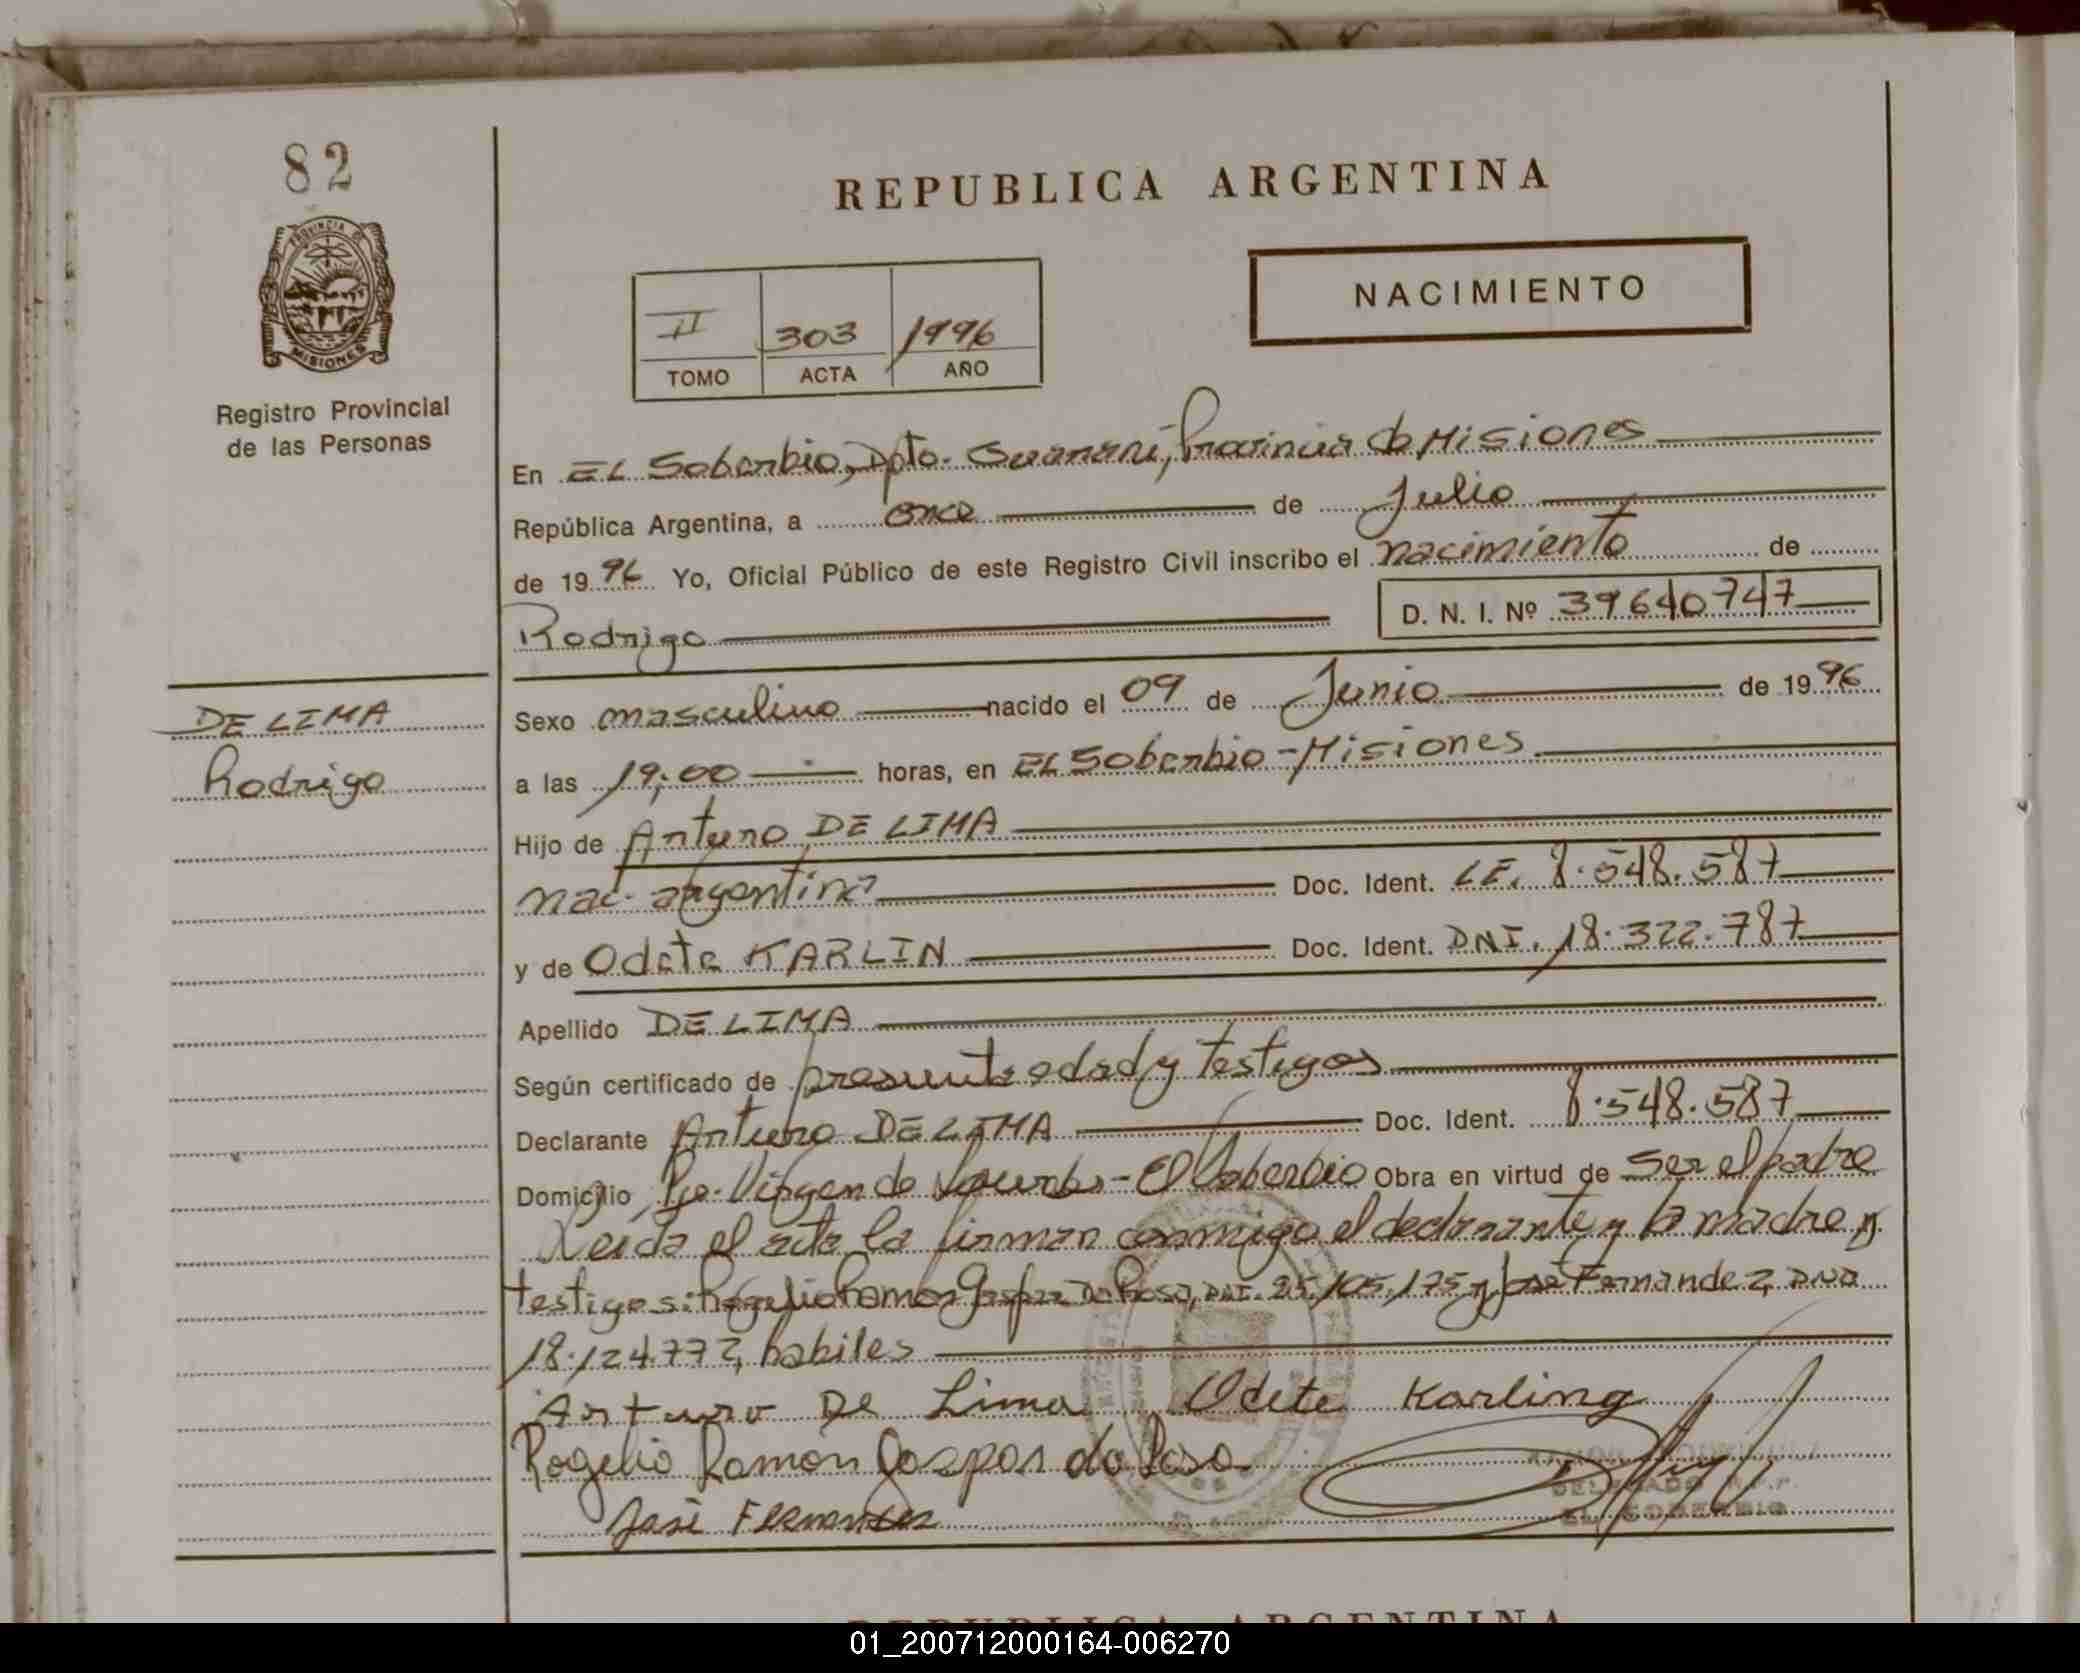 82
PROVINCIA DE
MISIONES
Registro Provincial
de las Personas
DE LIMA
Rodrigo
REPUBLICA ARGENTINA
NACIMIENTO
II 303 1996
TOMO ACTA AÑO
En EL Soberbio, Dpto. Guaraní, Provincia de Misiones
República Argentina, a once de Julio
de 1996 Yo, Oficial Público de este Registro Civil inscribo el nacimiento de
Rodrigo D. N. I. Nº 39640747
Sexo masculino nacido el 09 de Junio de 1996
a las 19,00 horas, en EL Soberbio - Misiones
Hijo de Arturo DE LIMA
nac. argentina Doc. Ident. LE. 8.548.587
y de Odete KARLIN Doc. Ident. DNI. 18.322.787
Apellido DE LIMA
Según certificado de presunta edad y testigos
Declarante Arturo DE LIMA Doc. Ident. 8.548.587
Domicilio Pje. Virgen de Lourdes - El Soberbio Obra en virtud de ser el padre
Leida el acta la firman conmigo el declarante y la madre y
testigos: Rogelio Ramon Gaspar Da Rosa, DNI. 25.105.175 y José Fernandez, DNI
18.124.772, habiles
Arturo De Lima Odete Karling
Rogelio Ramon Gaspar da Rosa
José Fernandez
DELEGADO R.P.P.
EL SOBERBIO
REPUBLICA ARGENTINA
01_200712000164-006270